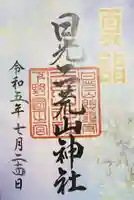 夏詣
日光二荒山神社
令和五年七月二十四日